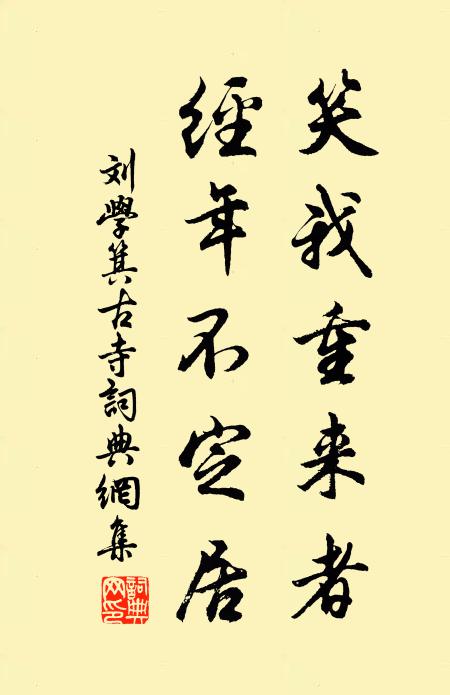 笑我重来者
經年不定居
刘學箕古寺詞典網集
詞典网印